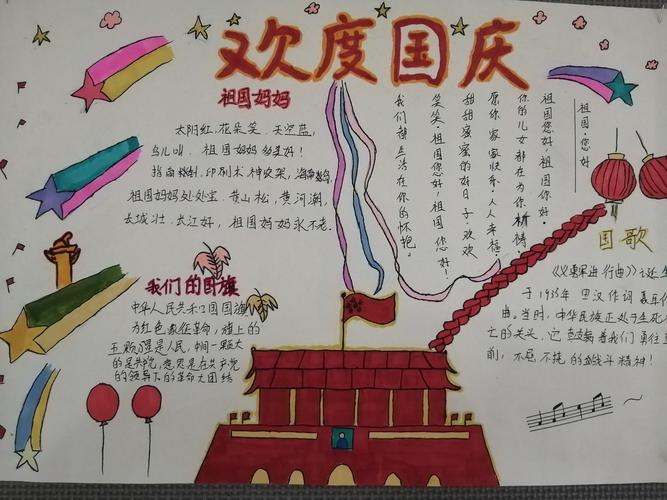 欢度国庆
祖国妈妈
太阳红,花朵笑。天空蓝,
鸟儿叫。祖国妈妈多美好!
祖国妈妈处处宝。黄山松,黄河潮,
长城壮。长江好,祖国妈妈永不老。
我们的国旗
中华人民共和国国旗
为红色,象征革命,旗上的
五颗星是人民,中间一颗大
的是共产党,意思是在共产党
的领导下的革命大团结
祖国,您好
祖国您好,祖国你好。
你的儿女都在为你祈祷。
愿你家家快乐,人人幸福,
甜甜蜜蜜的好日子,欢欢
笑笑。祖国您好,祖国您好!
我们都生活在你的怀抱。
国歌
《义勇军进行曲》
于1935年 田汉作词 聂耳作
曲。当时,中华民族正处于生死存
亡的关头,它鼓舞着我们勇往直
前,不屈不挠的战斗精神!